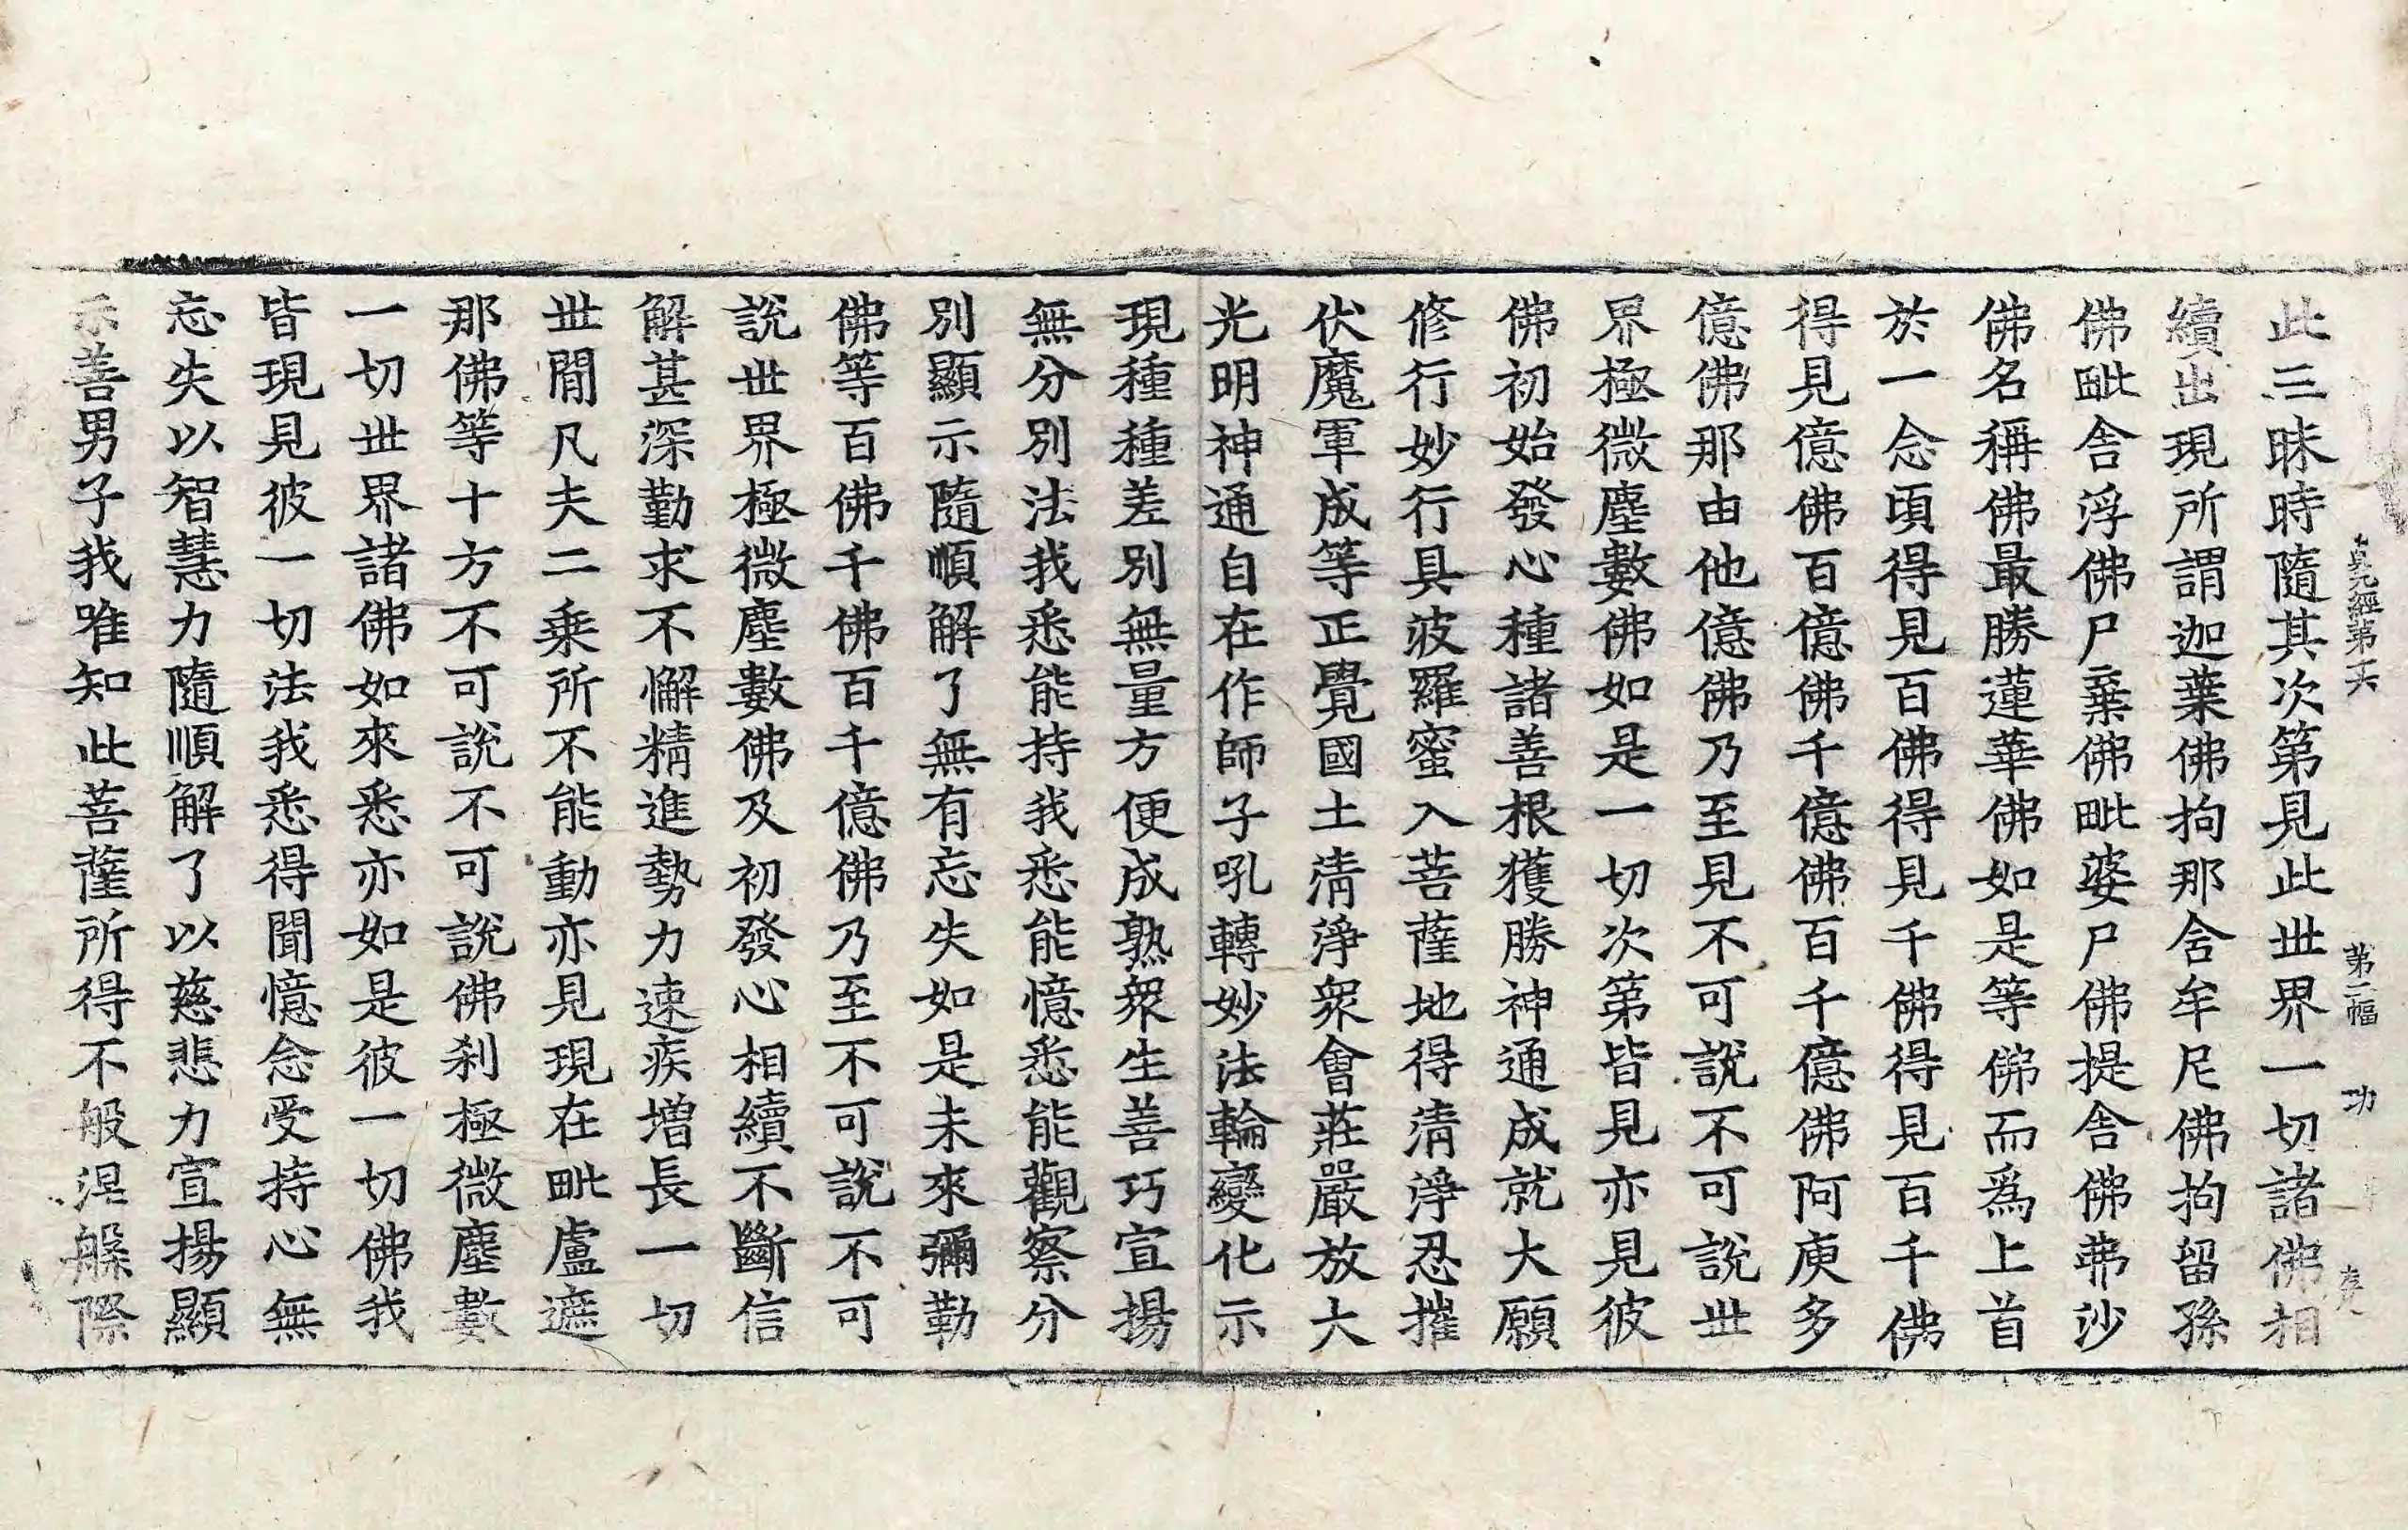 貞元經第十六 第二幅 功
此三昧時隨其次第見此世界一切諸佛相
續出現所謂迦葉佛拘那含牟尼佛拘留孫
佛毗舍浮佛尸棄佛毗婆尸佛提舍佛弗沙
佛名稱佛最勝蓮華佛如是等佛而爲上首
於一念頃得見百佛得見千佛得見百千佛
得見億佛百億佛千億佛百千億佛阿庾多
億佛那由他億佛乃至見不可說不可說世
界極微塵數佛如是一切次第皆見亦見彼
佛初始發心種諸善根獲勝神通成就大願
修行妙行具波羅蜜入菩薩地得清淨忍摧
伏魔軍成等正覺國土清淨衆會莊嚴放大
光明神通自在作師子吼轉妙法輪變化示
現種種差別無量方便成熟衆生善巧宣揚
無分別法我悉能持我悉能憶悉能觀察分
別顯示隨順解了無有忘失如是未來彌勒
佛等百佛千佛百千億佛乃至不可說不可
說世界極微塵數佛及初發心相續不斷信
解甚深勤求不懈精進勢力速疾增長一切
世間凡夫二乘所不能動亦見現在毗盧遮
那佛等十方不可說不可說佛刹極微塵數
一切世界諸佛如來悉亦如是彼一切佛我
皆現見彼一切法我悉得聞憶念受持心無
忘失以智慧力隨順解了以慈悲力宣揚顯
示善男子我唯知此菩薩所得不般涅槃際